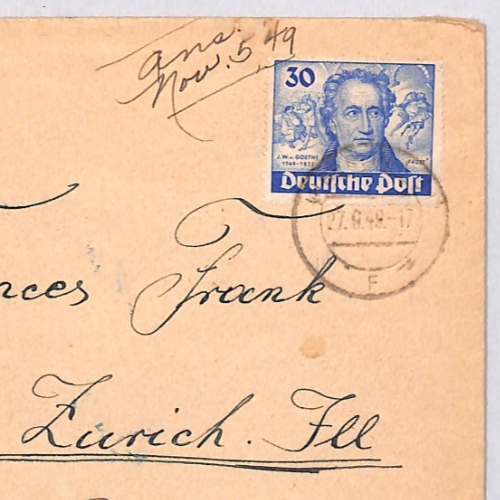 ans.
Nov. 5, 49
30
J.W.v. GOETHE
1749-1832
FAUST
Deutsche Post
27.9.49.-17
F
nces Frank
Zurich. Ill